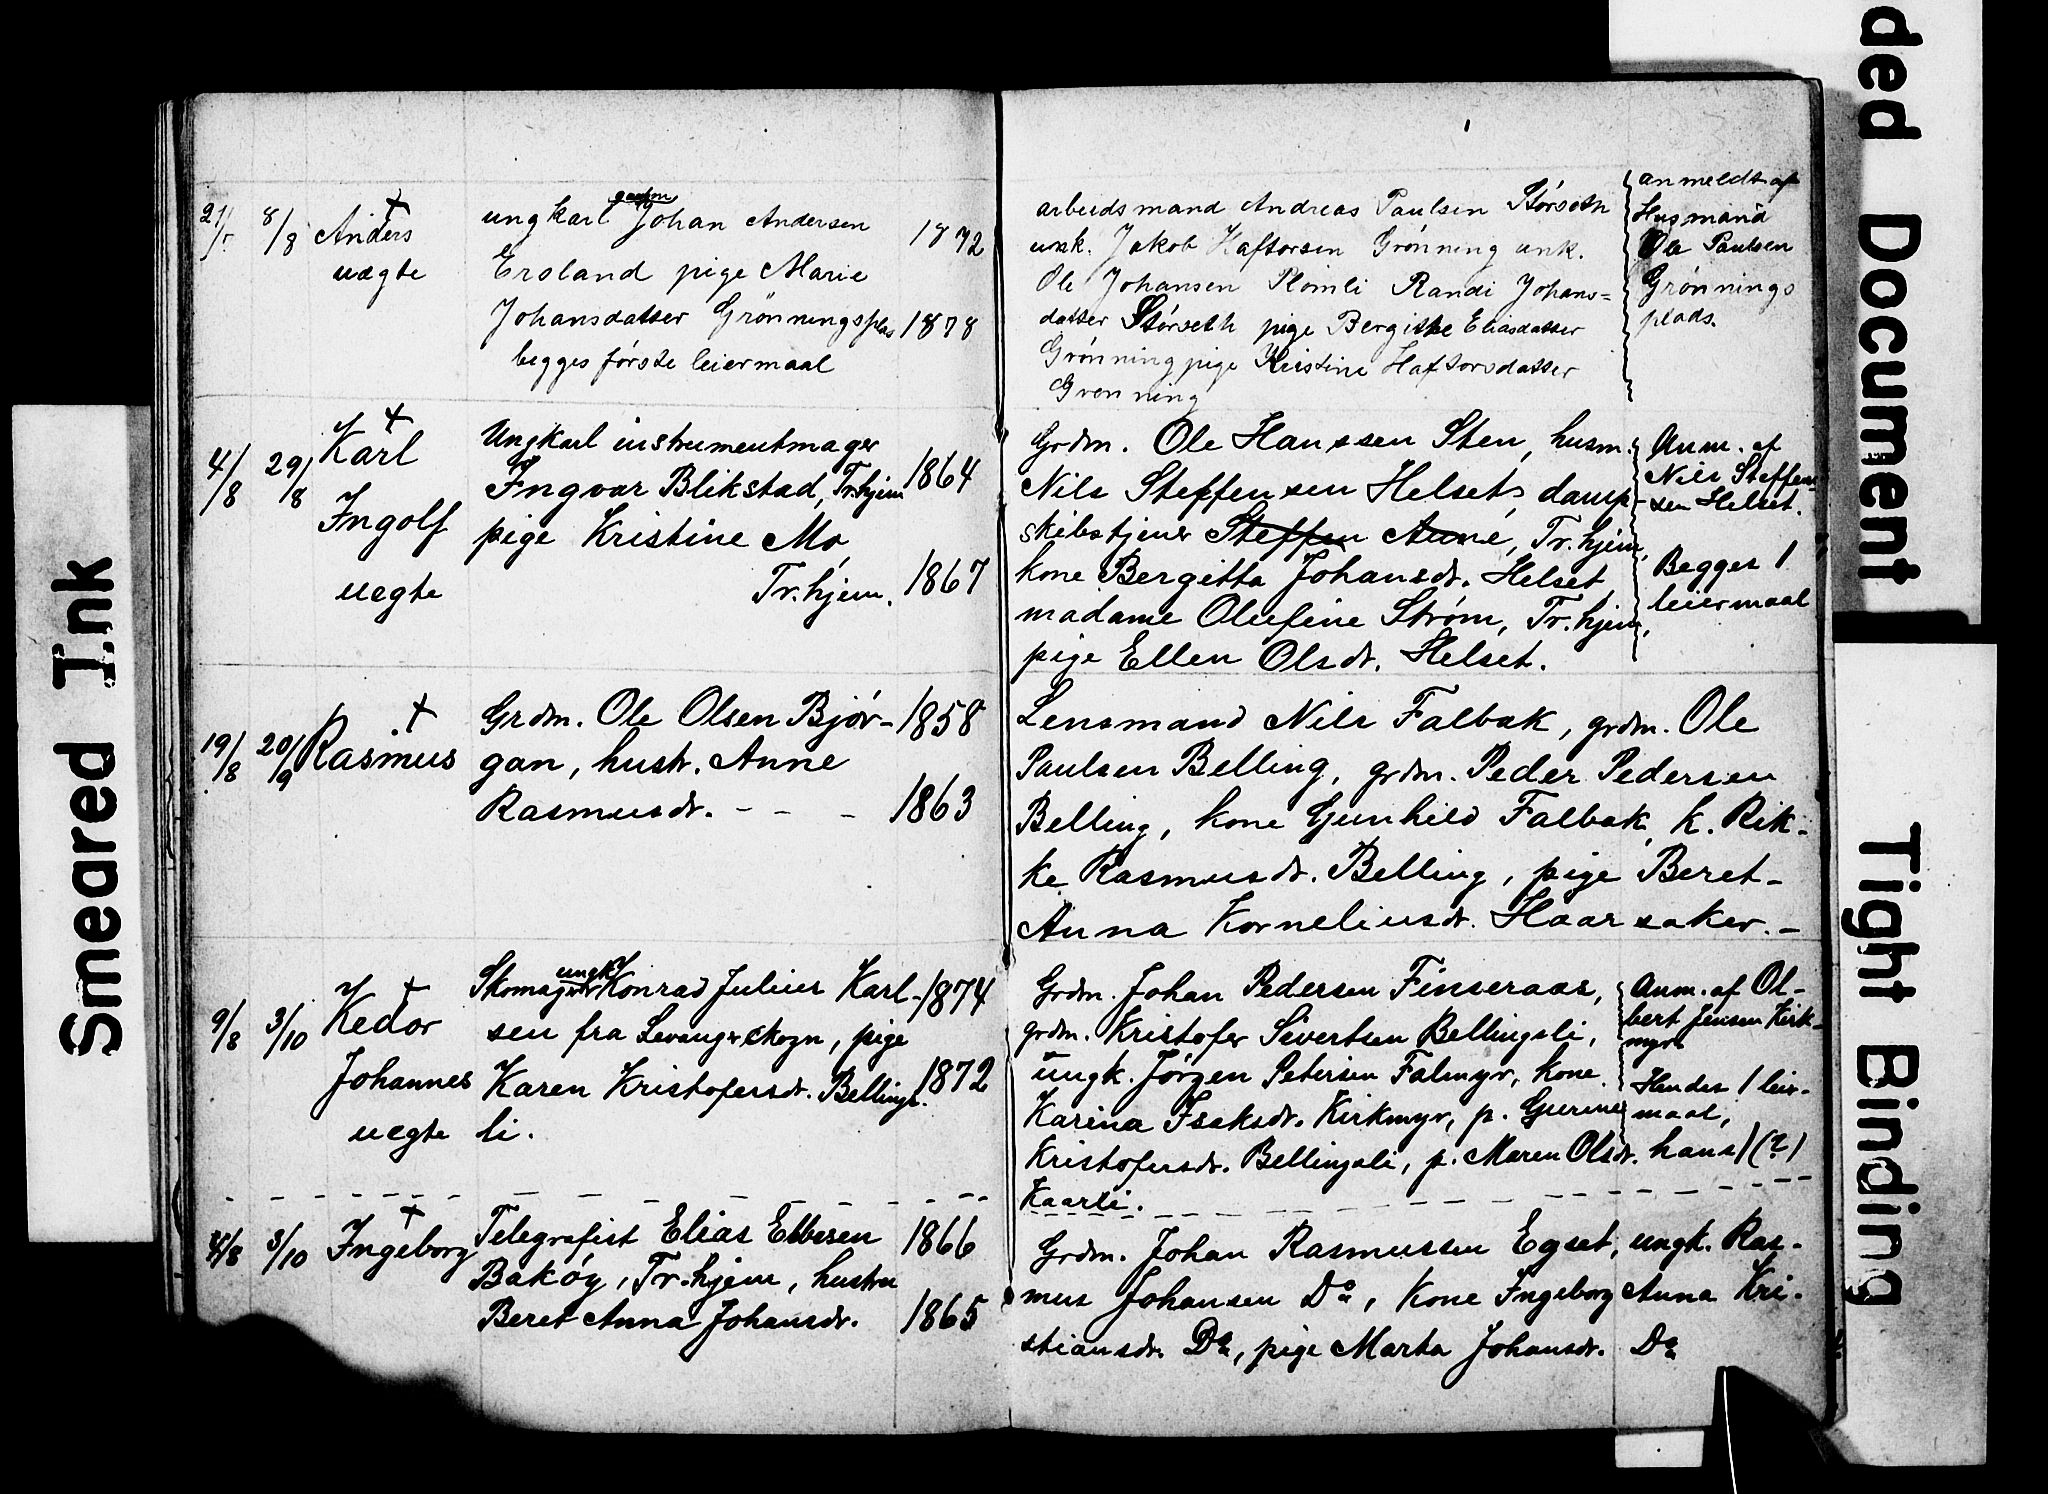 21/5 8/8 Anders
uægte
ungkarl Johan Andersen 1872
Eroland pige Marie
Johansdatter Grönningsplas 1878
begges første leiermaal
arbeidsmand Andreas Paulsen Störseth
unk. Jakob Haftorsen Grönning unk.
Ole Johansen Plömli Randi Johans=
datter Störseth pige Bergithe Eliasdatter
Grönning pige Kristine Haftorsdatter
Grönning
anmeldt af
Husmand
Ole Paulsen
Grönnings
plads.
4/8 29/8 Karl
Ingolf
uægte
Ungkarl instrumentmager
Ingvar Blikstad, Tr.hjem 1864
pige Kristine Mo,
Tr.hjem. 1867
Grdm. Ole Hanssen Sten, husm.
Nils Steffensen Helset, damp-
skibstjener Steffen Aune, Tr.hjem,
kone Bergitta Johansdr. Helset,
madame Olufine Strøm, Tr.hjem,
pige Ellen Olsdr. Helset.
Anm. af
Nils Steffen-
sen Helset.
Begges 1
leiermaal
19/8 20/9 Rasmus
Grdm. Ole Olsen Bjør- 1858
gan, hustr. Anne
Rasmusdr. - - - 1863
Lensmand Nils Falbak, grdm. Ole
Paulsen Belling, grdm. Peder Pedersen
Belling, kone Gunhild Falbak, k. Rik-
ke Rasmusdr. Belling, pige Beret-
Anna Korneliusdr. Haarsaker. -
9/8 3/10 Kedor
Johannes
uægte
ungk.
Skomager Konrad Julius Karl- 1874
sen fra Levangerskogn, pige
Karen Kristofersdr. Bellings- 1872
li.
Grdm. Johan Pedersen Finseraas,
grdm. Kristofer Sivertsen Bellingsli,
ungk. Jørgen Petersen Falmyr, kone
Karina Isaksdr. Kirkmyr, p. Gurine
Kristofersdr. Bellingsli, p. Maren Olsdr.
Kaarli.
Anm. af Ol-
bert Jensen Kirk-
myr
Hendes 1 leier-
maal,
hans 1 (?)
4/8 3/10 Ingeborg
Telegrafist Elias Ebbesen 1866
Bakøy, Tr.hjem, hustru
Beret Anna Johansdr. 1865
Grdm. Johan Rasmussen Egset, ungk. Ras-
mus Johansen Do, Kone Ingeborg Anna Kri-
stiansdr. Do, pige Marta Johansdr. Do
Smeared Ink
ded Document
Tight Binding